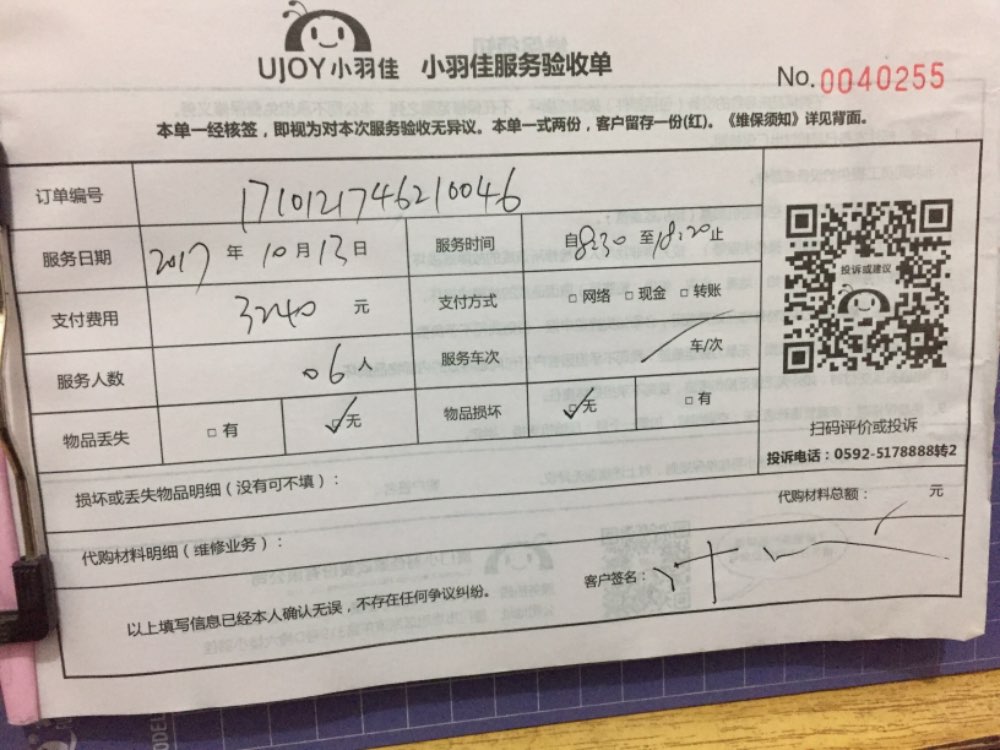 UJOY小羽佳 小羽佳服务验收单
No. 0040255
本单一经核签，即视为对本次服务验收无异议。本单一式两份，客户留存一份(红)。《维保须知》详见背面。
订单编号 171012174621 0046
服务日期 2017 年 10 月 13 日 服务时间 自 8:30 至 18:20 止
支付费用 3240 元 支付方式 □ 网络 □ 现金 □ 转账
服务人数 06 人 服务车次 / 车/次
物品丢失 □ 有 ☑ 无 物品损坏 ☑ 无 □ 有
投诉或建议
扫码评价或投诉
投诉电话：0592-5178888转2
损坏或丢失物品明细（没有可不填）：
代购材料总额： / 元
代购材料明细（维修业务）：
客户签名：
以上填写信息已经本人确认无误，不存在任何争议纠纷。